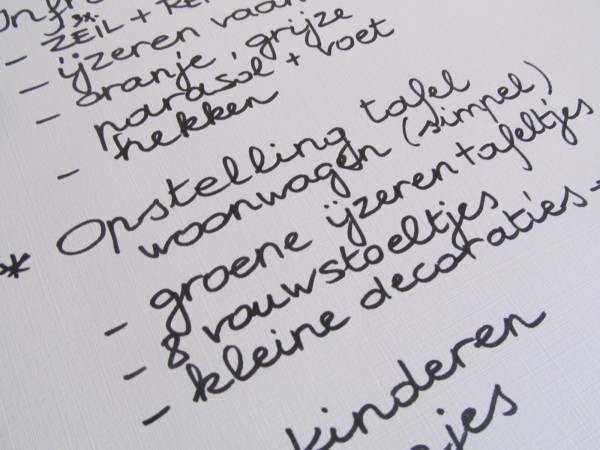 3x
- ZEIL +
- ijzeren
- oranje, grijze
parasol + voet
- hekken
* Opstelling tafel
woonwagen (simpel)
- groene ijzeren tafeltjes
- 8 vouwstoeltjes
- kleine decoraties -
kinderen